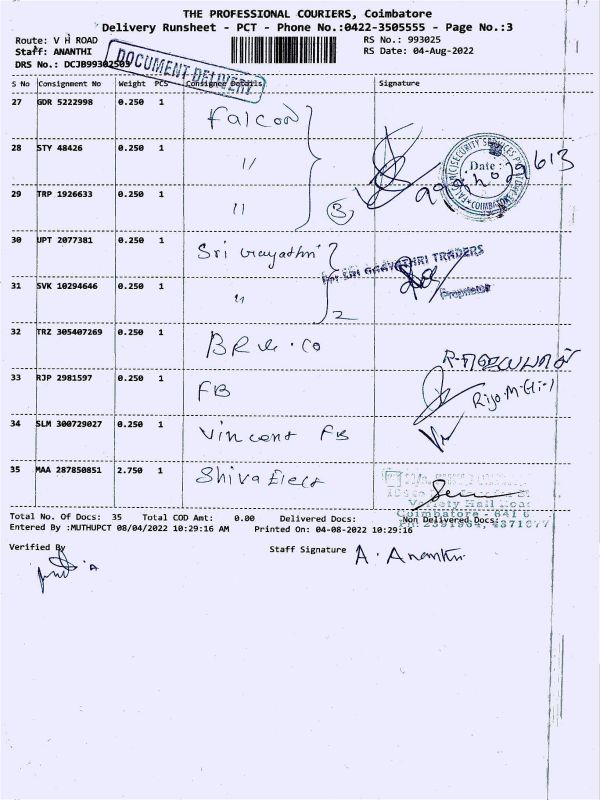 THE PROFESSIONAL COURIERS, Coimbatore
Delivery Runsheet - PCT - Phone No.:0422-3505555 - Page No.:3
Route: V H ROAD
RS No.: 993025
Staff: ANANTHI
RS Date: 04-Aug-2022
DRS No.: DCJB99302503
DOCUMENT DELIVERY
S No Consignment No Weight PCS Consignee Details Signature
27 GDR 5222998 0.250 1 Falcon
28 STY 48426 0.250 1 11
SECURITY SERVICES
Date:
COIMBATORE
29613
29 TRP 1926633 0.250 1 11
3
30 UPT 2077381 0.250 1 Sri Gayathri
For SRI GAAYATHRI TRADERS
Proprietor
31 SVK 10294646 0.250 1 11
2
32 TRZ 305407269 0.250 1 BRW. CO
33 RJP 2981597 0.250 1 FB
Rijo.M.G
34 SLM 300729027 0.250 1 Vincent FB
35 MAA 287850851 2.750 1 Shiva Elect
Variety Hall Road
Coimbatore - 641 0
Total No. Of Docs: 35 Total COD Amt: 0.00 Delivered Docs: Non Delivered Docs:
Entered By :MUTHUPCT 08/04/2022 10:29:16 AM Printed On: 04-08-2022 10:29:16
Verified By
Staff Signature A. Ananthi